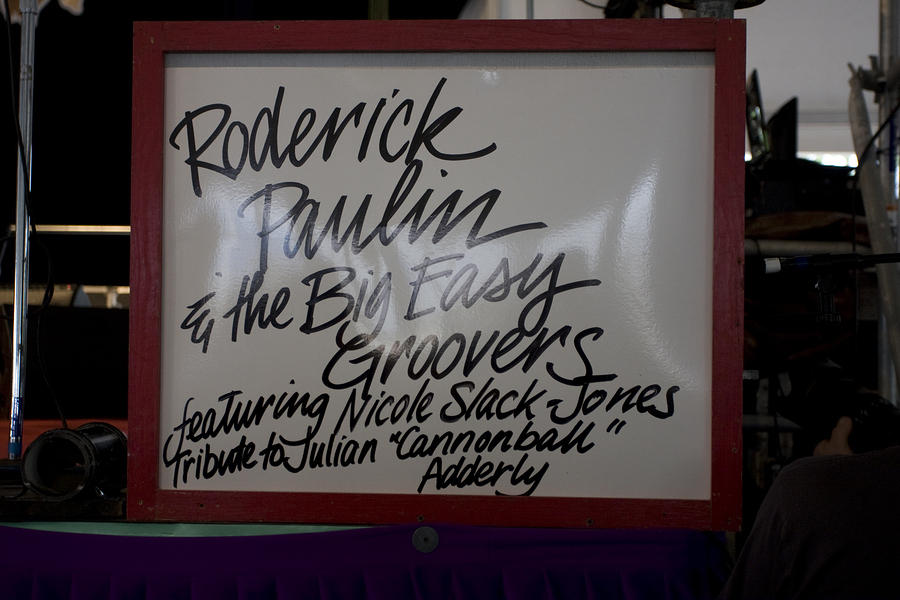 Roderick
Paulin
& the Big Easy
Groovers
featuring Nicole Slack-Jones
Tribute to Julian "Cannonball"
Adderly